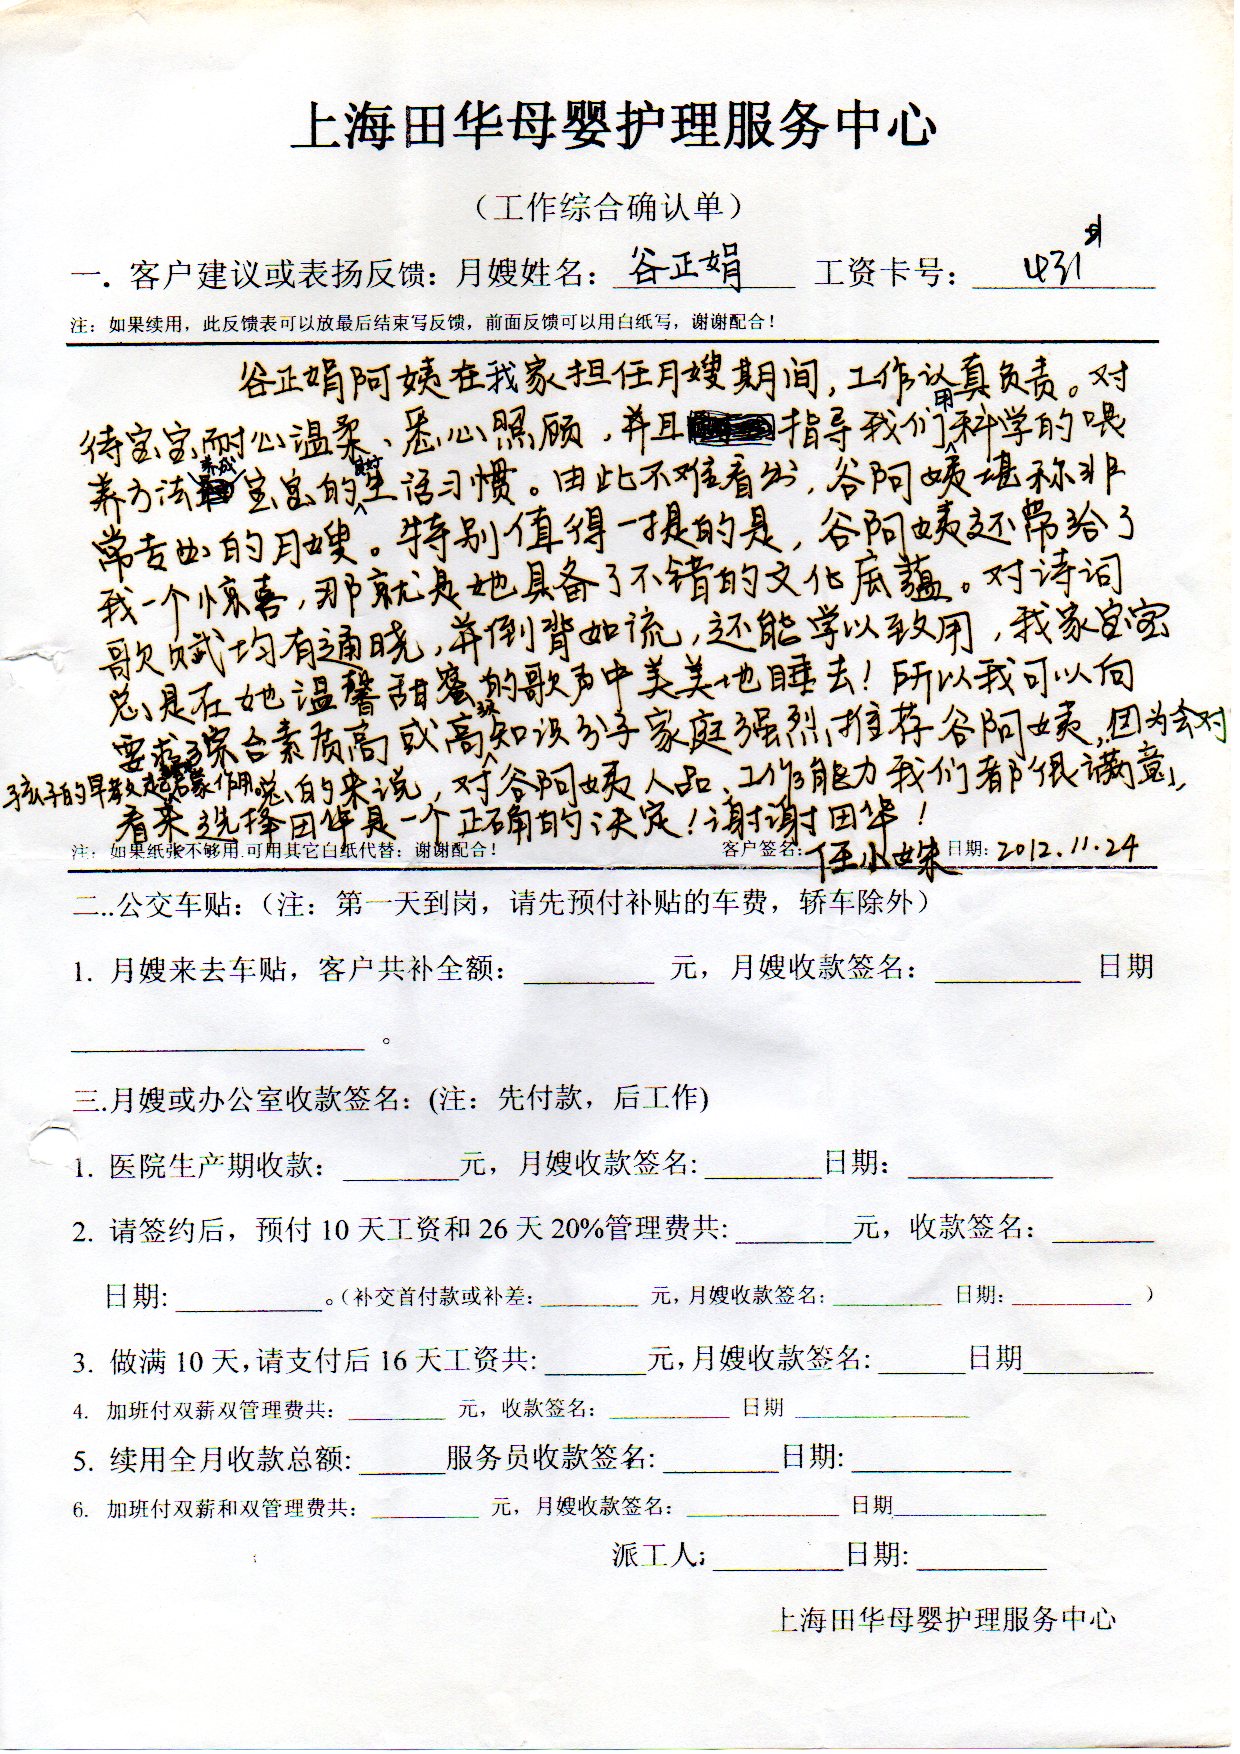 上海田华母婴护理服务中心
（工作综合确认单）
一．客户建议或表扬反馈：月嫂姓名：谷正娟 工资卡号：431
注：如果续用，此反馈表可以放最后结束写反馈，前面反馈可以用白纸写，谢谢配合！
谷正娟阿姨在我家担任月嫂期间，工作认真负责。对
待宝宝耐心温柔、悉心照顾，并且指导我们用科学的喂
养方法养成宝宝的良好生活习惯。由此不难看出，谷阿姨堪称非
常专业的月嫂。特别值得一提的是，谷阿姨还带给了
我一个惊喜，那就是她具备了不错的文化底蕴。对诗词
歌赋均有通晓，并倒背如流，还能学以致用，我家宝宝
总是在她温馨甜蜜的歌声中美美地睡去！所以我可以向
要求综合素质高或高级知识分子家庭强烈推荐谷阿姨，因为会对
孩子的早教起启蒙作用。总的来说，对谷阿姨人品、工作能力我们都很满意，
看来选择田华是一个正确的决定！谢谢田华！
注：如果纸张不够用.可用其它白纸代替；谢谢配合！ 客户签名：任小姝 日期：2012.11.24
二..公交车贴：（注：第一天到岗，请先预付补贴的车费，轿车除外）
1. 月嫂来去车贴，客户共补全额：________ 元，月嫂收款签名：________ 日期
________ 。
三.月嫂或办公室收款签名：(注：先付款，后工作)
1. 医院生产期收款：________元，月嫂收款签名:________日期：________
2. 请签约后，预付 10 天工资和 26 天 20%管理费共:________元，收款签名：________
日期:________。（补交首付款或补差:________ 元，月嫂收款签名:________ 日期:________ ）
3. 做满 10 天，请支付后 16 天工资共:________元，月嫂收款签名:________日期________
4. 加班付双薪双管理费共：________ 元，收款签名：________ 日期 ________
5. 续用全月收款总额:________服务员收款签名:________日期:________
6. 加班付双薪和双管理费共：________ 元，月嫂收款签名：________ 日期________
派工人：________日期:________
上海田华母婴护理服务中心